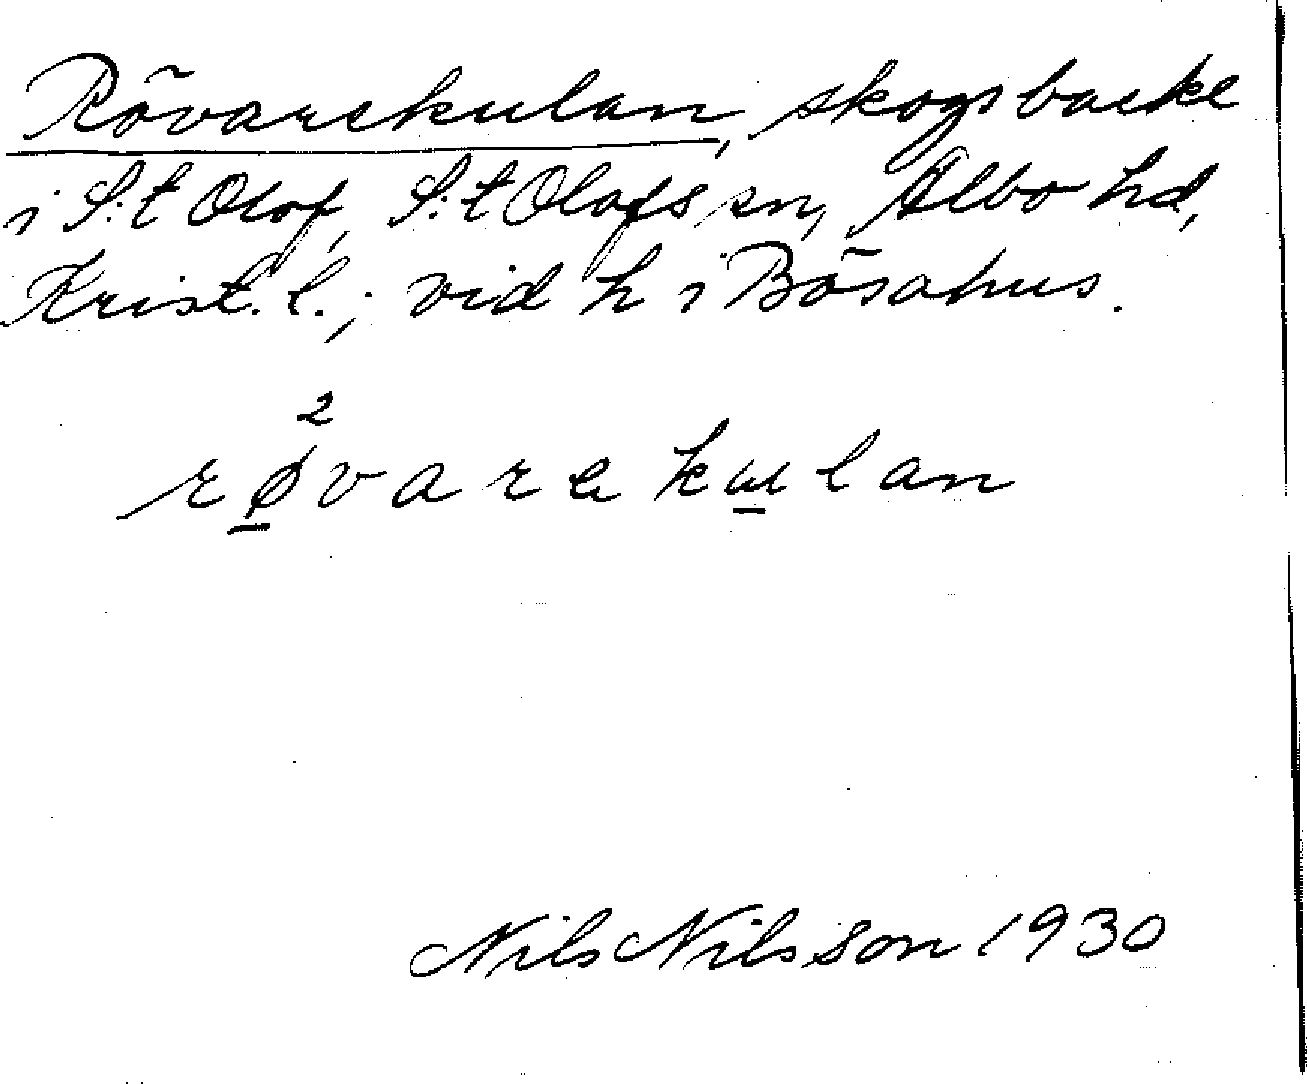 Rövarekulan, skogsbacke
i S:t Olof, S:t Olofs sn, Albo hd,
Krist. l.; vid h i Bösahus.
2
rø̱vareku̱lan
Nils Nilsson 1930